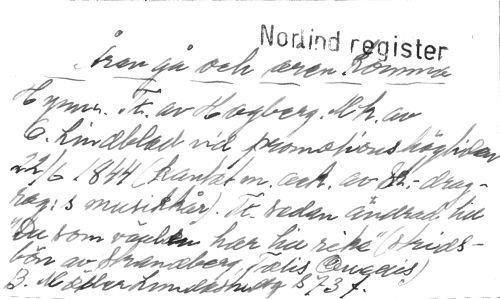 Norlind register
Åren gå och åren komma
Hymn. Tt. av Hagberg. Mk. av
O. Lindblad vid promotionshögtiden
22/6 1844 (kantat m. ack. av drag-
reg:s musikkår). Tt. sedan ändrad till
"Du som världen har till rike" (strids-
bön av Strandberg, Talis Qualis)
B. Möller Lundensia s 737.